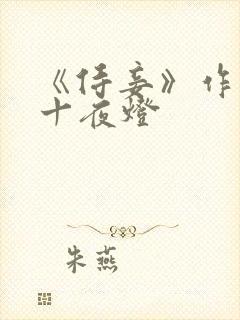 《侍妾》作
十夜燈
朱燕